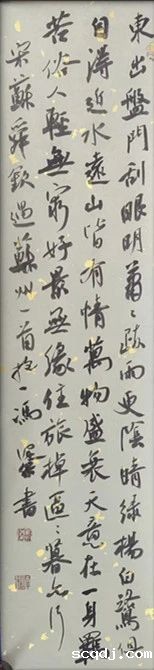 東出盤門刮眼明蕭々疎雨更陰晴緑楊白鷺俱
自得近水遠山皆有情萬物盛衰天意在一身羈
苦俗人輕無窮好景無緣住旅棹區々暮亦行
宋蘇舜欽過蘇州一首
書
www.scqdj.com